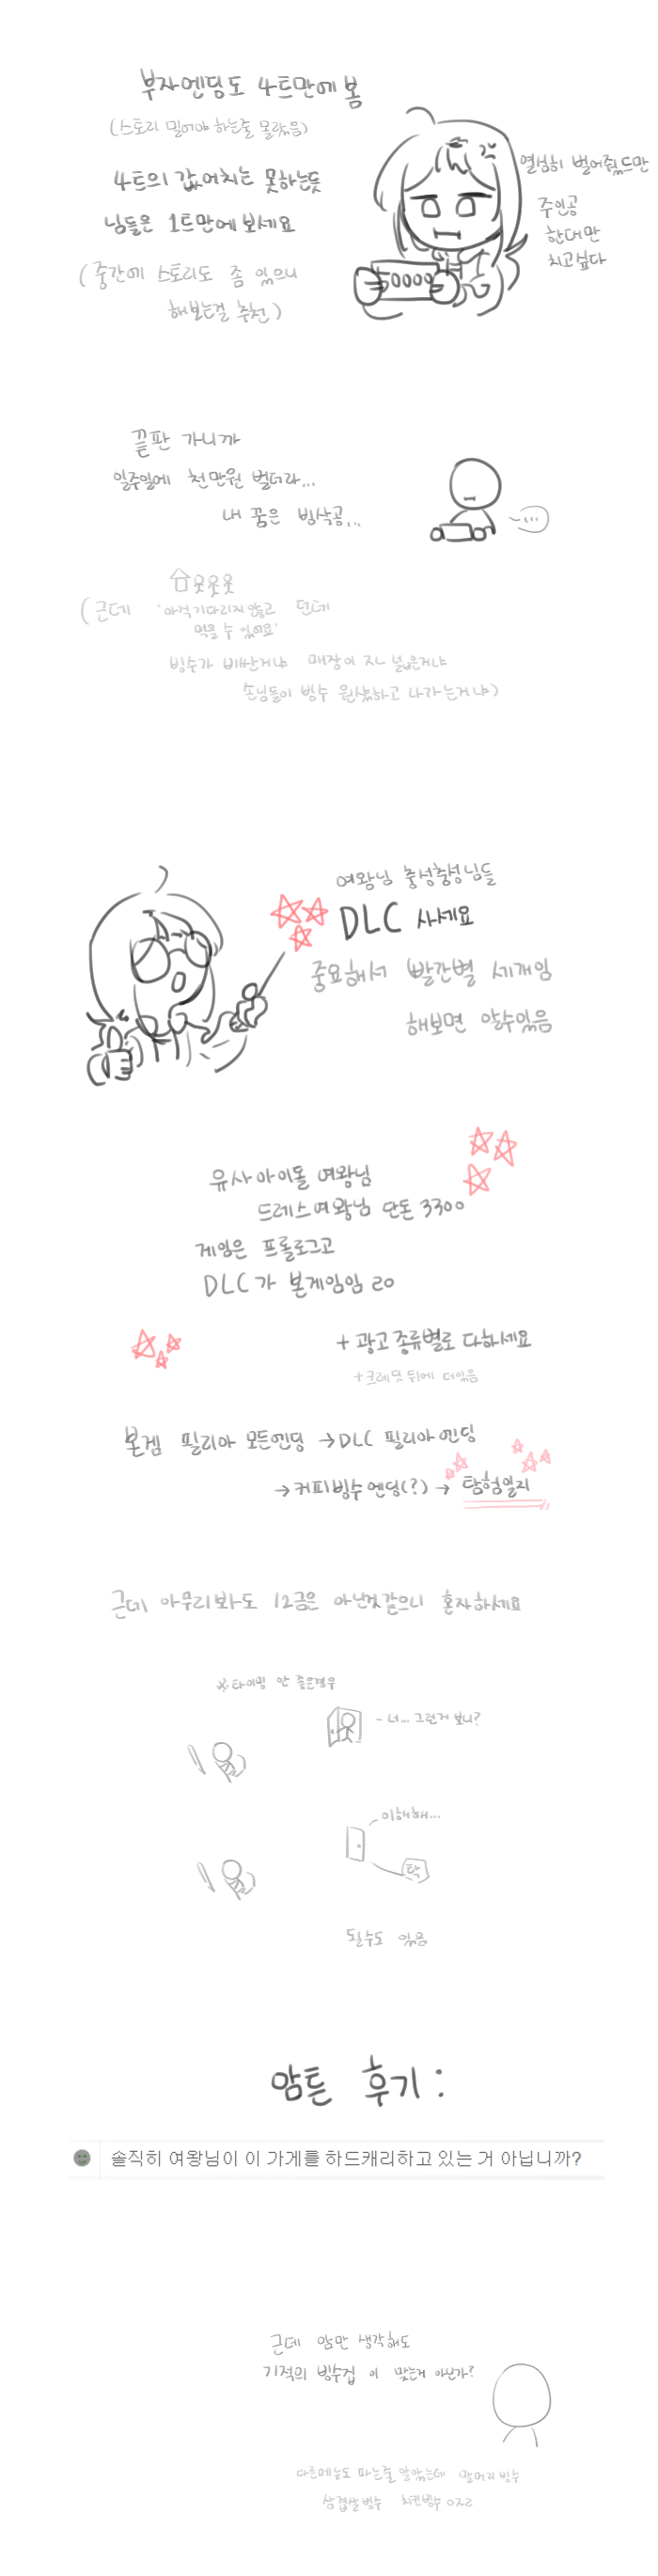 부자엔딩도 4트만에 봄
(스토리 밀어야 하는줄 몰랐음)
4트의 값어치는 못하는듯
님들은 1트만에 보세요
(중간에 스토리도 좀 있으니
해보는걸 추천)
열심히 벌어줬드만
주인공
한대만
치고싶다
끝판 가니까
일주일에 천만원 벌더라...
내 꿈은 빙삭공...
...
(근데 '아걱기다리지않고 던데
먹을 수 있어요'
빙수가 비싼거냐 매장이 지나 넓은거냐
손님들이 빙수 원샷하고 나가는거냐)
여왕님 충성충성님들
DLC 사세요
중요해서 빨간별 세개임
해보면 알수있음
유사아이돌 여왕님
드레스여왕님 단돈 3300
게임은 프롤로그고
DLC가 본게임임 ㄹㅇ
+ 광고 종류별로 다하세요
+크레딧 뒤에 더있음
본겜 필리아 모든엔딩 → DLC 필리아엔딩
→ 커피빙수엔딩(?) → 탐험일지
근데 아무리봐도 12금은 아닌것같으니 혼자하세요
※타이밍 안 좋은경우
- 너... 그런거 보니?
이해해...
탁
될수도 있음
암튼 후기 :
솔직히 여왕님이 이 가게를 하드캐리하고 있는 거 아닙니까?
근데 암만 생각해도
기적의 빙수집 이 맞는거 아닌가?
다른메뉴도 파는줄 알았는데 빙수
삼겹살빙수 치킨빙수 ㅇㅈㄹ